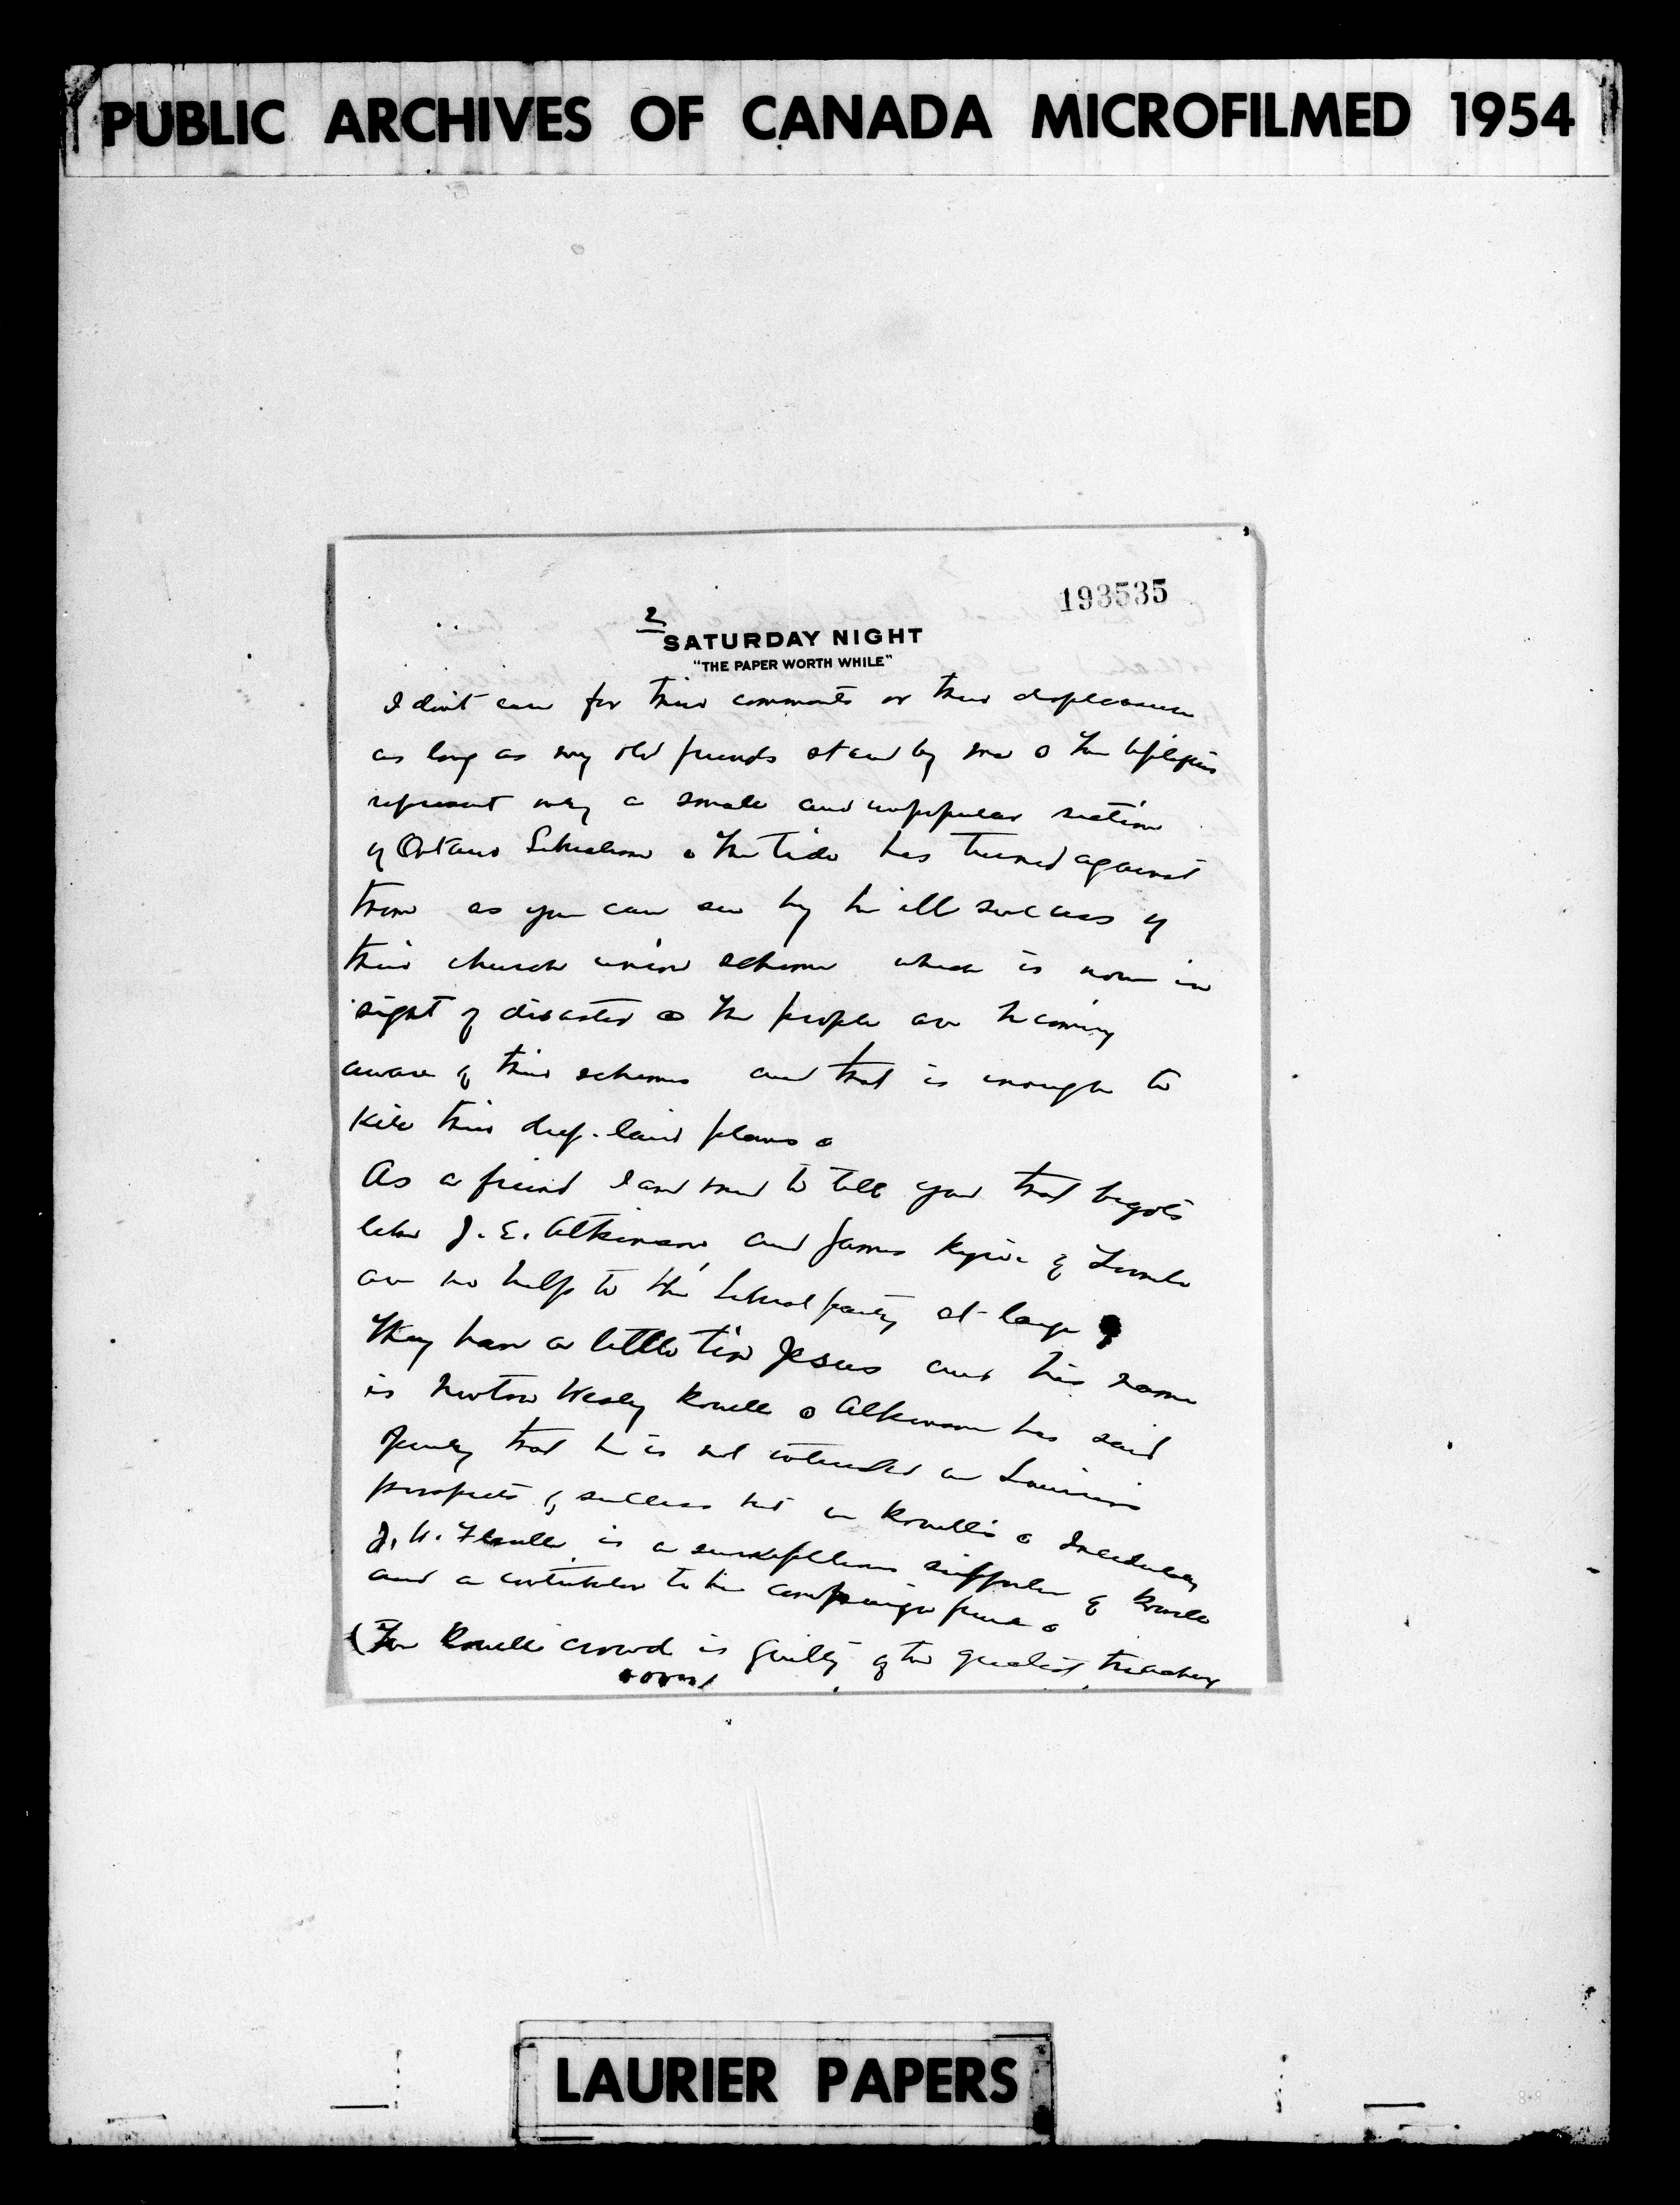 PUBLIC ARCHIVES OF CANADA MICROFILMED 1954
193535
2
SATURDAY NIGHT
"THE PAPER WORTH WHILE"
I don't care for their comments or their displeasure
as long as my old friends stand by me. The
represent only a small and unpopular section
of Ontario Liberalism. The tide has turned against
them as you can see by the ill success of
their church union scheme which is now in
sight of disaster. The people are becoming
aware of their schemes and that is enough to
kill their deep-laid plans.
As a friend I and to tell you that bigots
like J. E. Atkinson, and James Ryrie of Toronto
are no help to the Liberal party at large.
They have a little tin Jesus and his name
is Newton Wesley Rowell. Atkinson has said
openly that he is not interested in Laurier's
prospects of success but in Rowell's. Incidentally
J. W. Flavelle is a surreptitious supporter of Rowell
and a contributor to his campaign fund.
(The Rowell crowd is guilty of the greatest treachery
LAURIER PAPERS